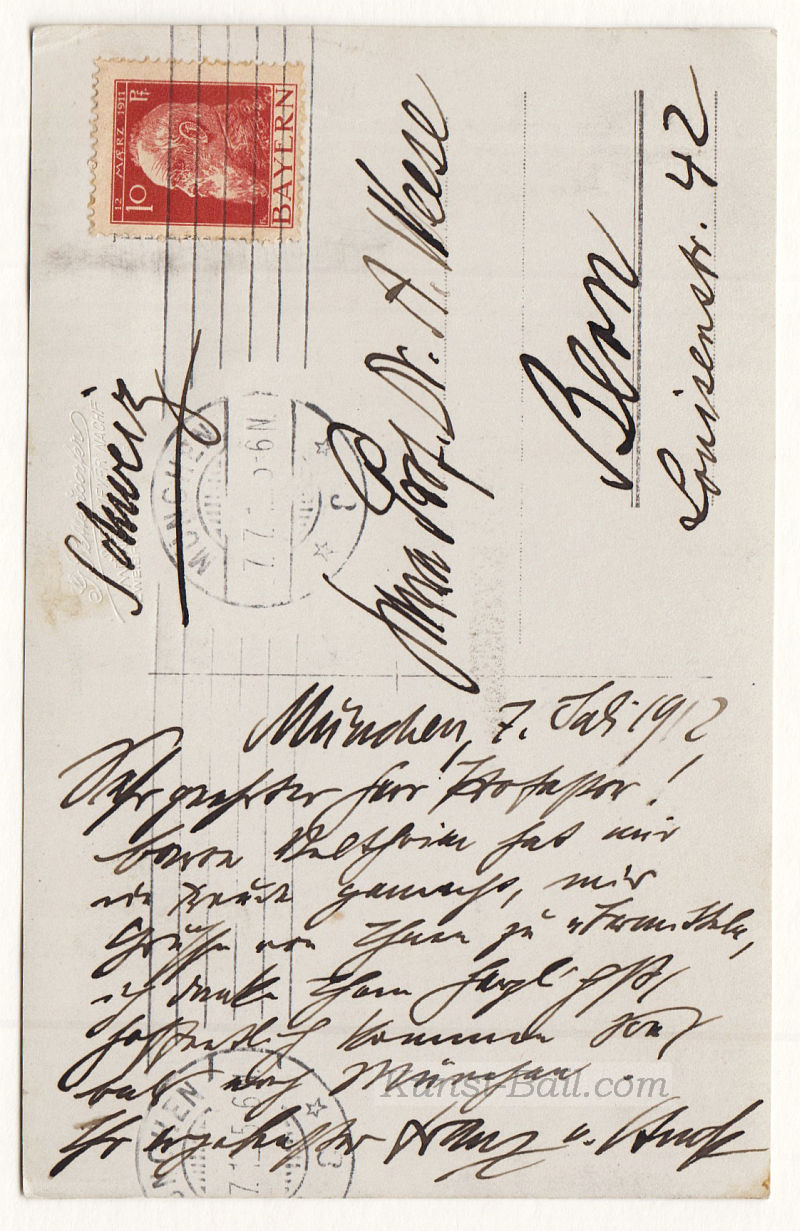 12 MÄRZ 1911
10 Pf.
BAYERN
MÜNCHEN
7.7. 5-6N
Schweiz
Herrn Prof. Dr. A. Weese
Bern
Louisenstr. 42
München, 7. Juli 1912
Sehr geehrter Herr Professor!
Baron Veltheim hat mir
die Freude gemacht, mir
Grüße von Ihnen zu übermitteln,
ich danke Ihnen herzlichst,
hoffentlich kommen Sie
bald nach München.
Ihr ergebenster Franz v. Stuck
MÜNCHEN
Kunst-Ball.com